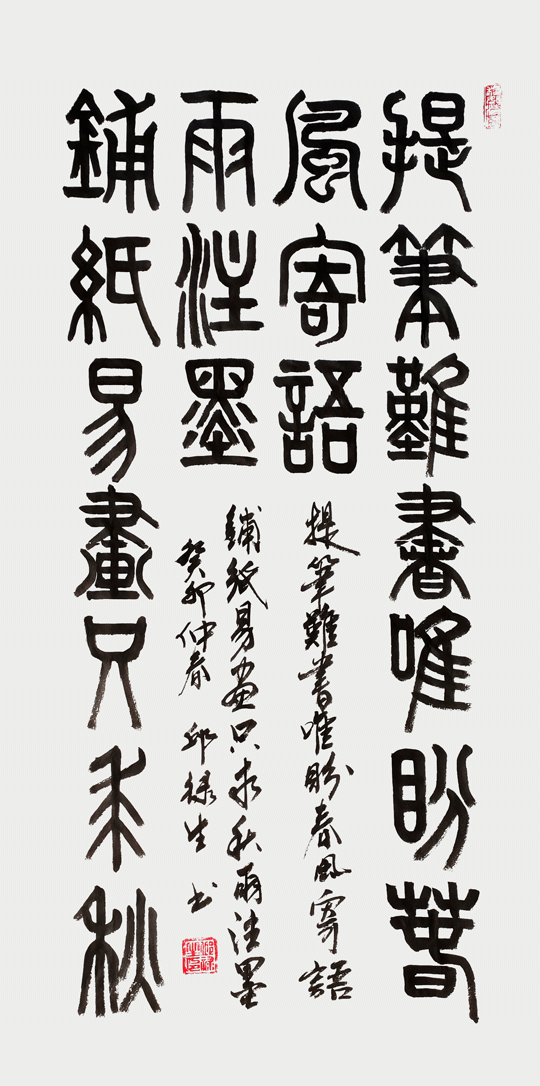 提筆難書唯盼春
風寄語
鋪紙易畫只求秋
雨注墨
提筆難書唯盼春風寄語
鋪紙易畫只求秋雨注墨
癸卯仲春 邱禄生书